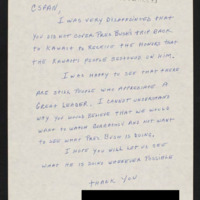 CSPAN,
I WAS VERY DISAPPOINTED THAT
YOU DID NOT COVER PRES BUSH'S TRIP BACK
TO KUWAIT TO RECEIVE THE HONORS THAT
THE KUWAITI PEOPLE BESTOWED ON HIM.
I WAS HAPPY TO SEE THAT THERE
ARE STILL PEOPLE WHO APPRECIATE A
GREAT LEADER. I CANNOT UNDERSTAND
WHY YOU WOULD BELIEVE THAT WE WOULD
WANT TO WATCH AND NOT WANT
TO SEE WHAT PRES BUSH IS DOING.
I HOPE YOU WILL LET US SEE
WHAT HE IS DOING WHENEVER POSSIBLE
THANK YOU